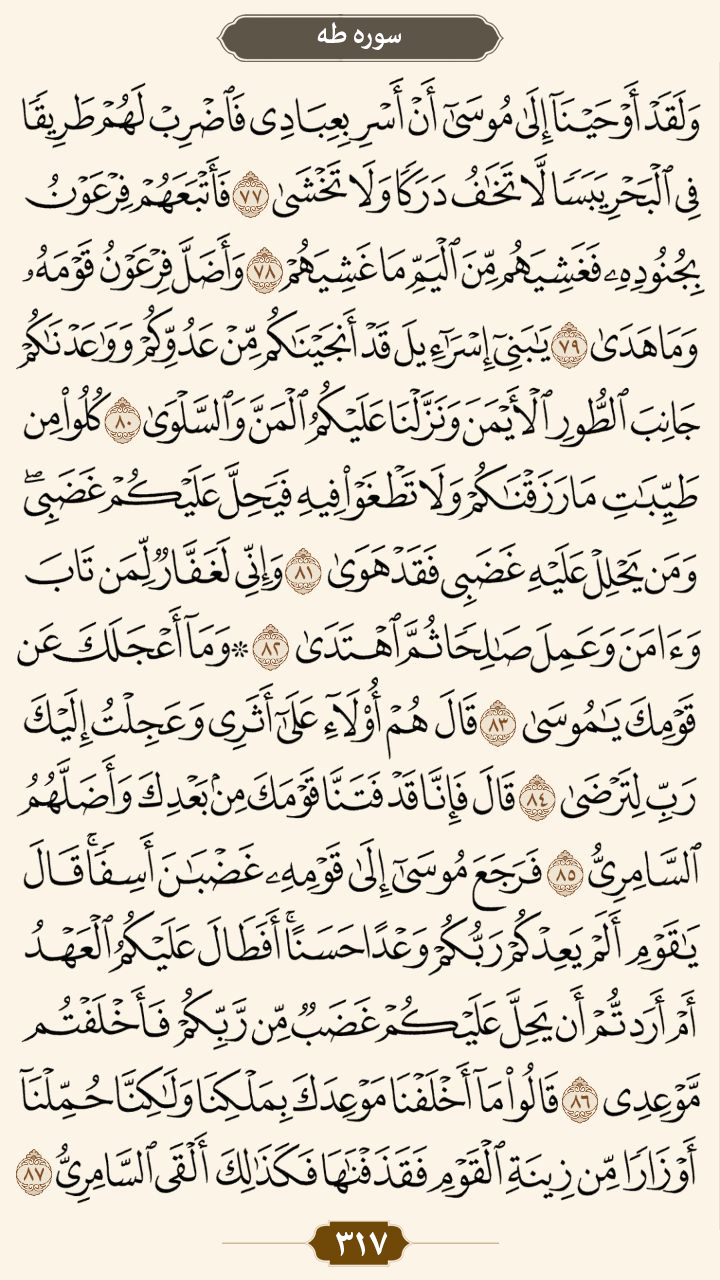 سوره طه
وَلَقَدْ أَوْحَيْنَآ إِلَىٰ مُوسَىٰٓ أَنْ أَسْرِ بِعِبَادِى فَٱضْرِبْ لَهُمْ طَرِيقًا
فِى ٱلْبَحْرِ يَبَسًا لَّا تَخَٰفُ دَرَكًا وَلَا تَخْشَىٰ ٧٧ فَأَتْبَعَهُمْ فِرْعَوْنُ
بِجُنُودِهِۦ فَغَشِيَهُم مِّنَ ٱلْيَمِّ مَا غَشِيَهُمْ ٧٨ وَأَضَلَّ فِرْعَوْنُ قَوْمَهُۥ
وَمَا هَدَىٰ ٧٩ يَٰبَنِىٓ إِسْرَٰٓءِيلَ قَدْ أَنجَيْنَٰكُم مِّنْ عَدُوِّكُمْ وَوَٰعَدْنَٰكُمْ
جَانِبَ ٱلطُّورِ ٱلْأَيْمَنَ وَنَزَّلْنَا عَلَيْكُمُ ٱلْمَنَّ وَٱلسَّلْوَىٰ ٨٠ كُلُوا۟ مِن
طَيِّبَٰتِ مَا رَزَقْنَٰكُمْ وَلَا تَطْغَوْا۟ فِيهِ فَيَحِلَّ عَلَيْكُمْ غَضَبِىۖ
وَمَن يَحْلِلْ عَلَيْهِ غَضَبِى فَقَدْ هَوَىٰ ٨١ وَإِنِّى لَغَفَّارٌ لِّمَن تَابَ
وَءَامَنَ وَعَمِلَ صَٰلِحًا ثُمَّ ٱهْتَدَىٰ ٨٢ ۞ وَمَآ أَعْجَلَكَ عَن
قَوْمِكَ يَٰمُوسَىٰ ٨٣ قَالَ هُمْ أُو۟لَآءِ عَلَىٰٓ أَثَرِى وَعَجِلْتُ إِلَيْكَ
رَبِّ لِتَرْضَىٰ ٨٤ قَالَ فَإِنَّا قَدْ فَتَنَّا قَوْمَكَ مِنۢ بَعْدِكَ وَأَضَلَّهُمُ
ٱلسَّامِرِىُّ ٨٥ فَرَجَعَ مُوسَىٰٓ إِلَىٰ قَوْمِهِۦ غَضْبَٰنَ أَسِفًاۚ قَالَ
يَٰقَوْمِ أَلَمْ يَعِدْكُمْ رَبُّكُمْ وَعْدًا حَسَنًاۚ أَفَطَالَ عَلَيْكُمُ ٱلْعَهْدُ
أَمْ أَرَدتُّمْ أَن يَحِلَّ عَلَيْكُمْ غَضَبٌ مِّن رَّبِّكُمْ فَأَخْلَفْتُم
مَّوْعِدِى ٨٦ قَالُوا۟ مَآ أَخْلَفْنَا مَوْعِدَكَ بِمَلْكِنَا وَلَٰكِنَّا حُمِّلْنَآ
أَوْزَارًا مِّن زِينَةِ ٱلْقَوْمِ فَقَذَفْنَٰهَا فَكَذَٰلِكَ أَلْقَى ٱلسَّامِرِىُّ ٨٧
٣١٧